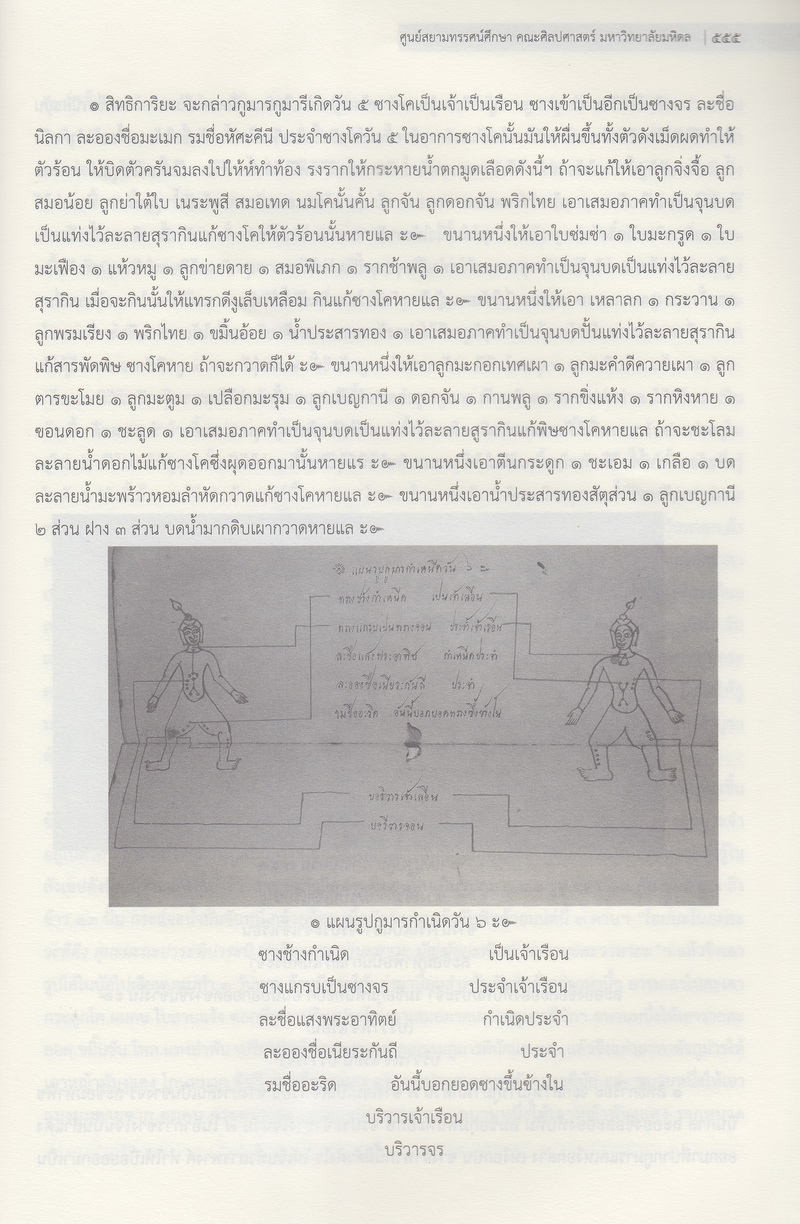 ศูนย์สยามทรรศน์ศึกษา คณะศิลปศาสตร์ มหาวิทยาลัยมหิดล | ๕๕๕
๏ สิทธิการิยะ จะกล่าวกูมารกูมารีเกิดวัน ๕ ซางโคเป็นเจ้าเป็นเรือน ซางเข้าเป็นอีกเป็นซางจร ละชื่อ
นิลกา ละอองชื่อมะเมก รมชื่อหัศะคีนี ประจำซางโควัน ๕ ในอาการซางโคนั้นมันให้ผื่นขึ้นทั้งตัวดังเม็ดผดทำให้
ตัวร้อน ให้บิดตัวครันจมลงไปให้ห์ทำท้อง รงรากให้กระหายน้ำตกมูดเลือดดังนี้ฯ ถ้าจะแก้ให้เอาลูกจิ่งจื้อ ลูก
สมอน้อย ลูกย่าใต้ใบ เนระพูสี สมอเทด นมโคนั้นคั้น ลูกจัน ลูกดอกจัน พริกไทย เอาเสมอภาคทำเป็นจุนบด
เป็นแท่งไว้ละลายสุรากินแก้ซางโคให้ตัวร้อนนั้นหายแล ะ๛ ขนานหนึ่งให้เอาใบซ่มซ่า ๑ ใบมะกรูด ๑ ใบ
มะเฟือง ๑ แห้วหมู ๑ ลูกข่ายดาย ๑ สมอพิเภก ๑ รากช้าพลู ๑ เอาเสมอภาคทำเป็นจุนบดเป็นแท่งไว้ละลาย
สุรากิน เมื่อจะกินนั้นให้แทรกดีงูเล็บเหลือม กินแก้ซางโคหายแล ะ๛ ขนานหนึ่งให้เอา เหลาลก ๑ กระวาน ๑
ลูกพรมเรียง ๑ พริกไทย ๑ ขมิ้นอ้อย ๑ น้ำประสารทอง ๑ เอาเสมอภาคทำเป็นจุนบดปั้นแท่งไว้ละลายสุรากิน
แก้สารพัดพิษ ซางโคหาย ถ้าจะกวาดก็ได้ ะ๛ ขนานหนึ่งให้เอาลูกมะกอกเทศเผา ๑ ลูกมะคำดีควายเผา ๑ ลูก
ตารขะโมย ๑ ลูกมะตูม ๑ เปลือกมะรุม ๑ ลูกเบญกานี ๑ ดอกจัน ๑ กานพลู ๑ รากขิ่งแห้ง ๑ รากหิงหาย ๑
ขอนดอก ๑ ชะลูด ๑ เอาเสมอภาคทำเป็นจุนบดเป็นแท่งไว้ละลายสูรากินแก้พิษซางโคหายแล ถ้าจะชะโลม
ละลายน้ำดอกไม้แก้ซางโคซึ่งผุดออกมานั้นหายแร ะ๛ ขนานหนึ่งเอาตีนกระดูก ๑ ชะเอม ๑ เกลือ ๑ บด
ละลายน้ำมะพร้าวหอมลำหัดกวาดแก้ซางโคหายแล ะ๛ ขนานหนึ่งเอาน้ำประสารทองสัตุส่วน ๑ ลูกเบญกานี
๒ ส่วน ฝาง ๓ ส่วน บดน้ำมากดิบเผากวาดหายแล ะ๛
บอริวารเจ้าเรือน
บอริวารจอน
๏ แผนรูปกูมารกำเนิดวัน ๖ ะ๛
ซางช้างกำเนิด เป็นเจ้าเรือน
ซางแกรบเป็นซางจร ประจำเจ้าเรือน
ละชื่อแสงพระอาทิตย์ กำเนิดประจำ
ละอองชื่อเนียระกันถี ประจำ
รมชื่ออะริด อันนี้บอกยอดซางขึ้นข้างใน
บริวารเจ้าเรือน
บริวารจร